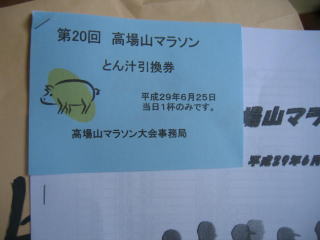 第20回 高場山マラソン
とん汁引換券
平成29年6月25日
当日1杯のみです。
高場山マラソン大会事務局
場山マラ
平成29年6月